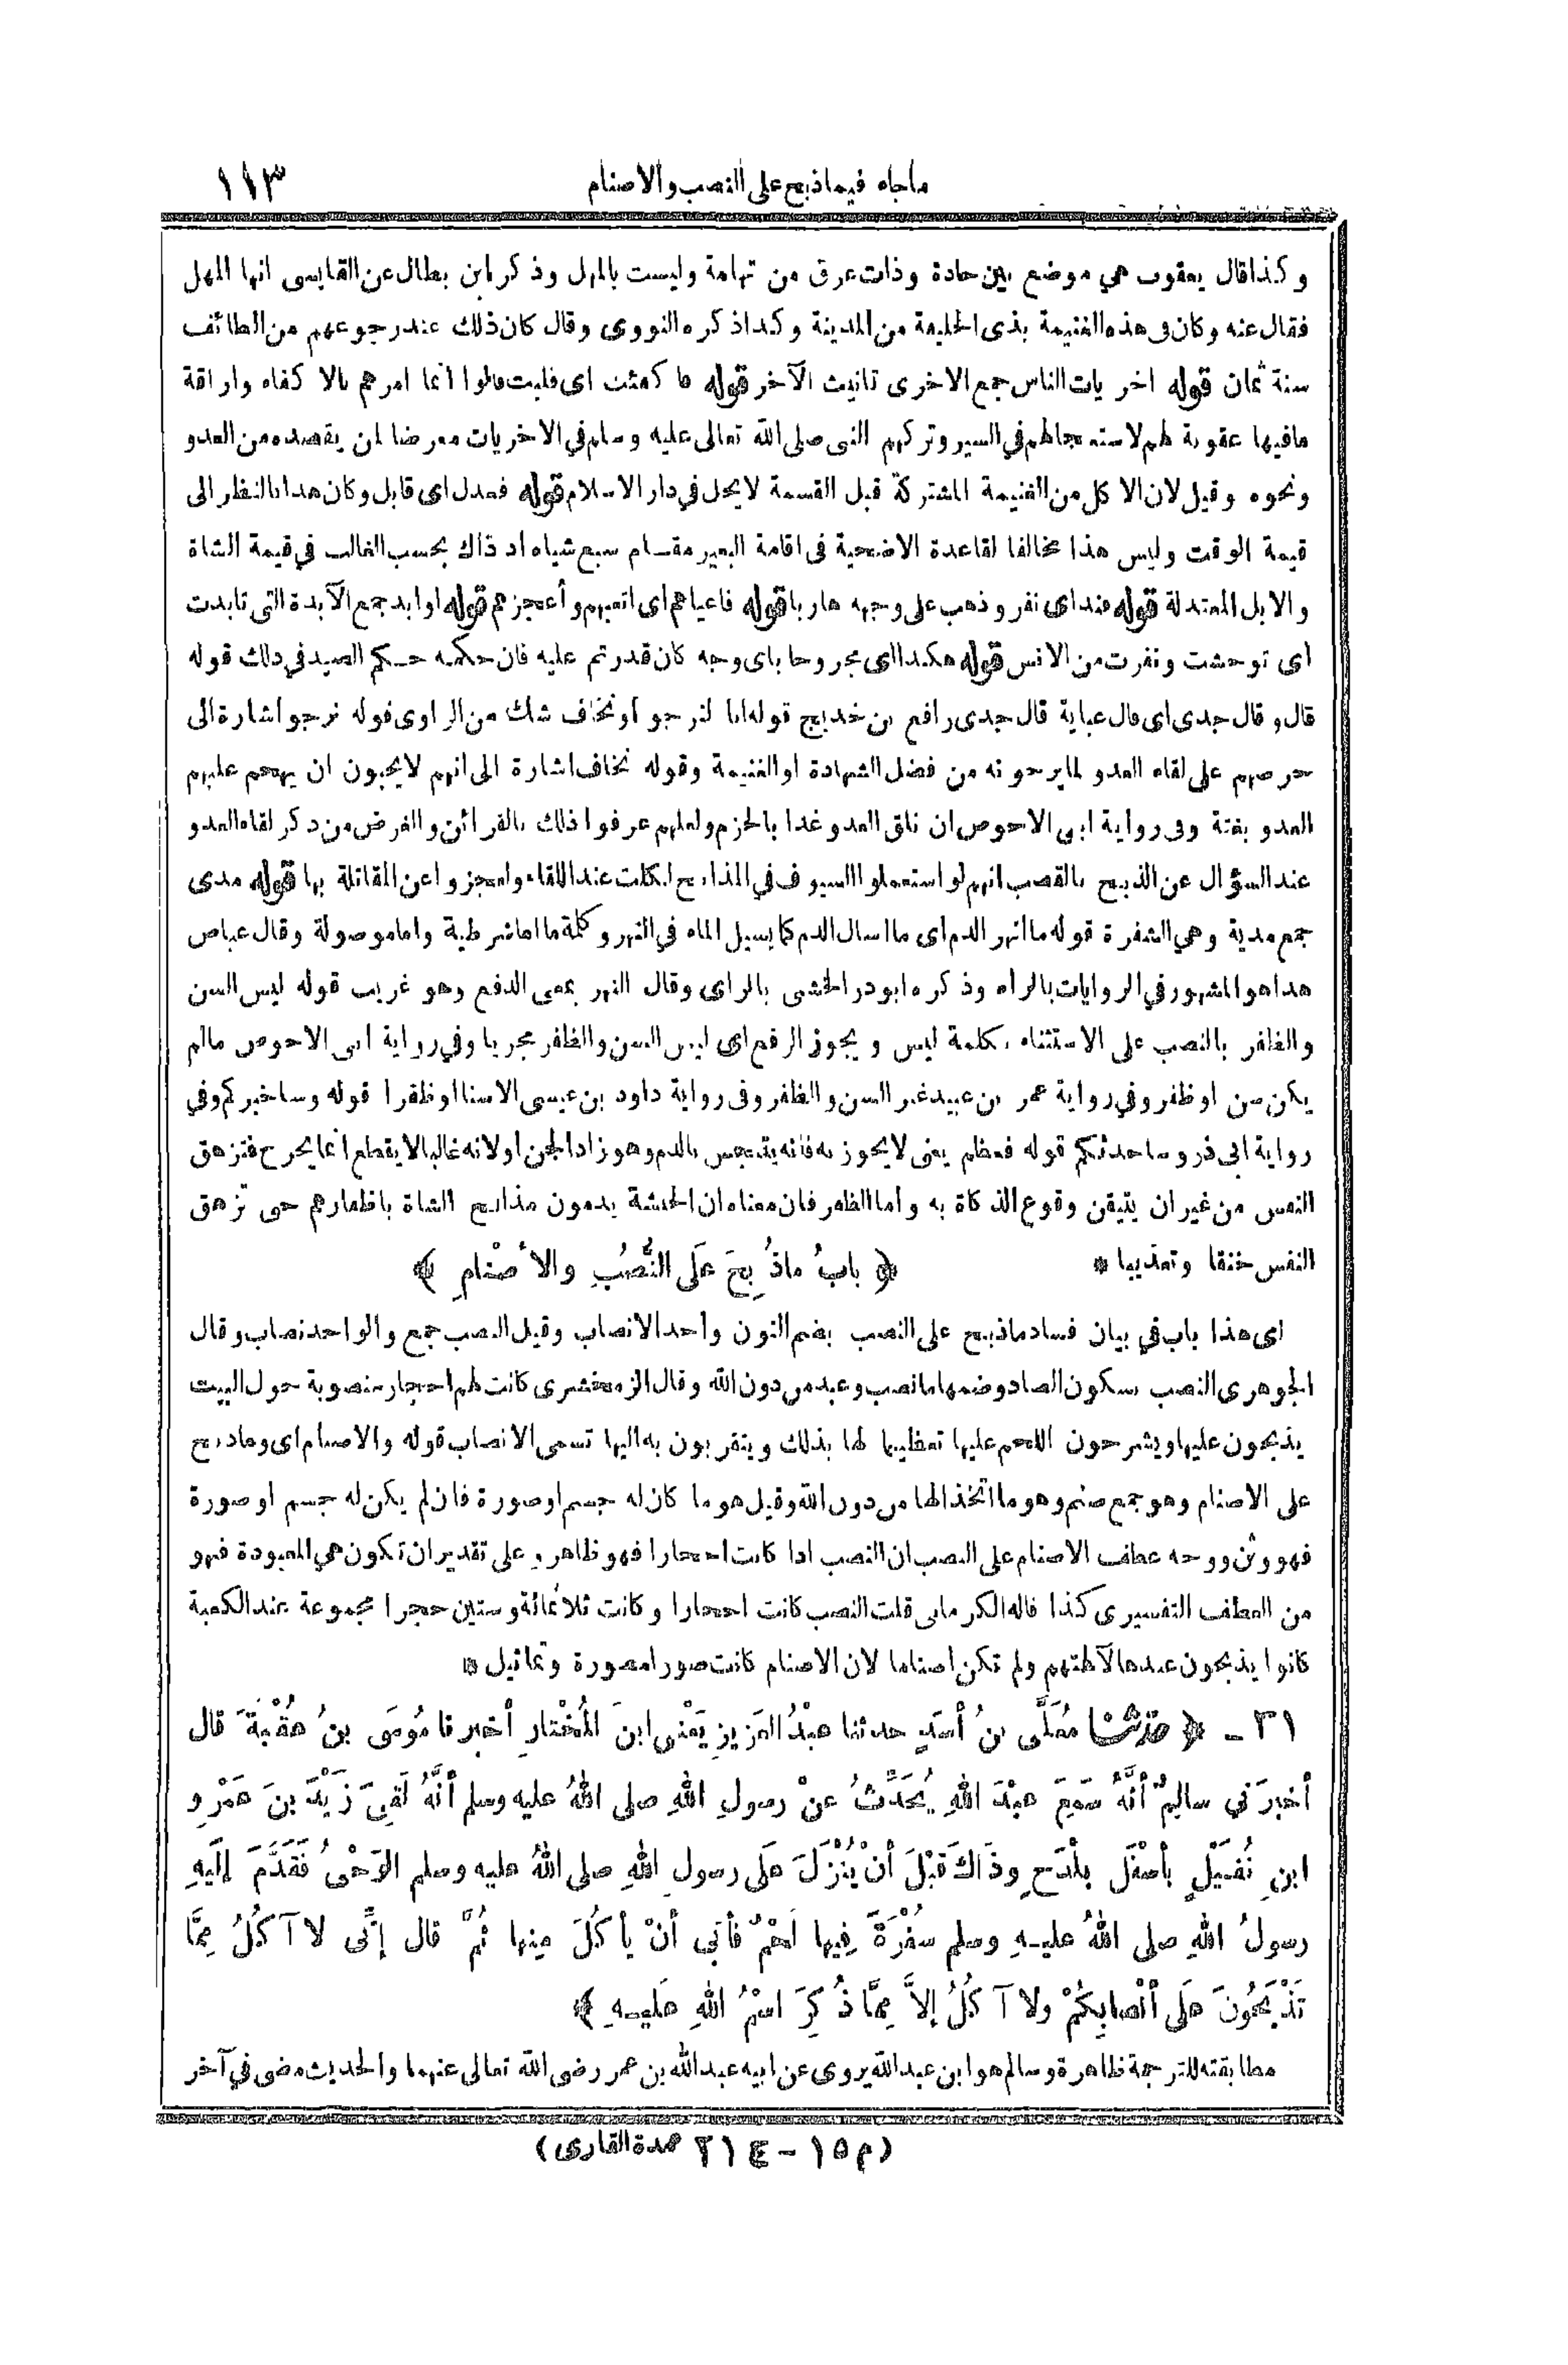 ماجاء فيما ذبح على النصب والاصنام ١١٣
وكذا قال يعقوب هي موضع بين حادة وذات عرق من تهامة وليست بالمهل وذكر ابن بطال عن القابسى انها المهل
فقال عنه وكان فى هذه الغنيمة بذى الحليفة من المدينة وكذا ذكره النووى وقال كان ذلك عند رجوعهم من الطائف
سنة ثمان قوله اخريات الناس جمع الاخرى تانيث الآخر قوله فاكفئت اى قلبت قالوا انما امرهم بالا كفاء واراقة
مافيها عقوبة لهم لاستعجالهم في السير وتركهم النبى صلى الله تعالى عليه وسلم في الاخريات معرضا لمن يقصده من العدو
ونحوه وقيل لان الاكل من الغنيمة المشتركة قبل القسمة لايحل في دار الاسلام قوله فعدل اى قابل وكان هذا بالنظر الى
قيمة الوقت وليس هذا مخالفا لقاعدة الاضحية فى اقامة البعير مقام سبع شياه اذ ذاك بحسب الغالب في قيمة الشاة
والابل المعتدلة قوله فند اى نفر وذهب على وجهه هاربا قوله فاعياهم اى اتعبهم وأعجزهم قوله اوابد جمع الآبدة التى تابدت
اى توحشت ونفرت من الانس قوله هكذا اى مجروحا باى وجه كان قدرتم عليه فان حكمه حكم الصيد في ذلك قوله
قال وقال جدى اى قال عباية قال جدى رافع بن خديج قوله انا لنرجو او نخاف شك من الراوى قوله نرجو اشارة الى
حرصهم على لقاء العدو لما يرجونه من فضل الشهادة او الغنيمة وقوله نخاف اشارة الى انهم لايحبون ان يهجم عليهم
العدو بغتة وفى رواية ابى الاحوص ان نلقى العدو غدا بالجزم ولعلهم عرفوا ذلك بالقرائن والغرض من ذكر لقاء العدو
عند السؤال عن الذبيح بالقصب انهم لو استعملوا السيوف في المذابح لكلت عند اللقاء ولعجزوا عن المقاتلة بها قوله مدى
جمع مدية وهي الشفرة قوله ما انهر الدم اى ما اسال الدم كما يسيل الماء في النهر وكلمة ما اما شرطية واما موصولة وقال عياض
هذا هو المشهور في الروايات بالراء وذكره ابو ذر الخشنى بالزاى وقال النهز بمعنى الدفع وهو غريب قوله ليس السن
والظفر بالنصب على الاستثناء بكلمة ليس ويجوز الرفع اى ليس السن والظفر مجزيا وفي رواية ابى الاحوص مالم
يكن سن او ظفر وفي رواية عمر بن عبيد غير السن والظفر وفى رواية داود بن عيسى الا سنا او ظفرا قوله وساخبركم وفي
رواية ابى ذر وساحدثكم قوله فعظم يعنى لايجوز به فانه يتنجس بالدم وهو زاد الجن او لانه غالبا لايقطع انما يجرح فتزهق
النفس من غير ان يتيقن وقوع الذكاة به واما الظفر فان معناه ان الحبشة يدمون مذابح الشاة باظفارهم حتى تزهق
النفس خنقا وتعذيبا *
﴿ بابُ ماذُبِحَ عَلَى النُّصُبِ والأصْنامِ ﴾
اى هذا باب في بيان فساد ماذبح على النصب بضم النون واحد الانصاب وقيل النصب جمع والواحد نصاب وقال
الجوهرى النصب بسكون الصاد وضمها ما نصب وعبد من دون الله وقال الزمخشرى كانت لهم احجار منصوبة حول البيت
يذبحون عليها ويشرحون اللحم عليها تعظيما لها بذلك ويتقربون به اليها تسمى الانصاب قوله والاصنام اى وماذبح
على الاصنام وهو جمع صنم وهو ما اتخذ الها من دون الله وقيل هو ما كان له جسم او صورة فان لم يكن له جسم او صورة
فهو وثن ووجه عطف الاصنام على النصب ان النصب اذا كانت احجارا فهو ظاهر وعلى تقدير ان تكون هي المعبودة فهو
من العطف التفسيرى كذا قاله الكرمانى قلت النصب كانت احجارا وكانت ثلاثمائة وستين حجرا مجموعة عند الكعبة
كانوا يذبحون عندها لآلهتهم ولم تكن اصناما لان الاصنام كانت صورا مصورة وتماثيل *
٣١ ـ ﴿ حدثنا مُعَلَّى بنُ أسَدٍ حدثنا عبْدُ العَزِيزِ يَعْنِى ابنَ المُخْتارِ أخبرنا مُوسَى بنُ عُقْبَةَ قال
أخبرَني سالِمٌ أنَّهُ سَمِعَ عبْدَ اللهِ يُحَدِّثُ عنْ رسولِ اللهِ صلى اللهُ عليه وسلم أنَّهُ لَقِيَ زَيْدَ بنَ عَمْرِو
ابنِ نُفَيْلٍ بأسْفَلِ بلْدَحٍ وذَاكَ قَبْلَ أنْ يُنْزَلَ عَلَى رسولِ اللهِ صلى اللهُ عليه وسلم الوَحْىُ فَقَدَّمَ إلَيهِ
رسولُ اللهِ صلى اللهُ عليهِ وسلم سُفْرَةً فِيها لَحْمٌ فأبَى أنْ يأكُلَ مِنها ثُمَّ قال إنِّى لا آكُلُ مِمَّا
تَذْبَحُونَ عَلَى أنْصابِكُمْ ولا آكُلُ إلاَّ مِمَّا ذُكِرَ اسْمُ اللهِ عَليهِ ﴾
مطابقته للترجمة ظاهرة وسالم هو ابن عبد الله يروى عن ابيه عبد الله بن عمر رضى الله تعالى عنهما والحديث مضى في آخر
(م ١٥ - ج ٢١ عمدة القارى)